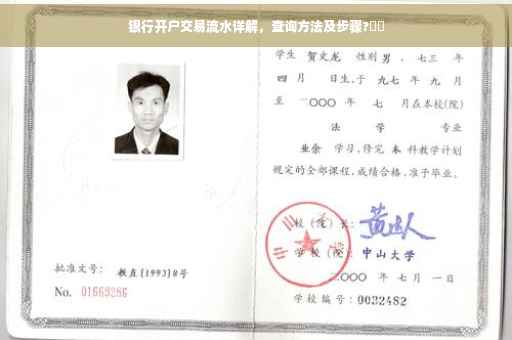 银行开户交易流水详解，查询方法及步骤?
学生 贺文龙 性别 男，七三 年
四 月 日生，于 九七 年 九 月
至 二〇〇〇 年 七 月在本校(院)
法 学 专业
业余 学习，修完 本 科教学计划
规定的全部课程，成绩合格，准予毕业。
校（院）长：
学校（院）：中山大学
二〇〇〇 年 七 月 一 日
批准文号： 教直[1993]8号
No. 01669286
学校编号：0032482